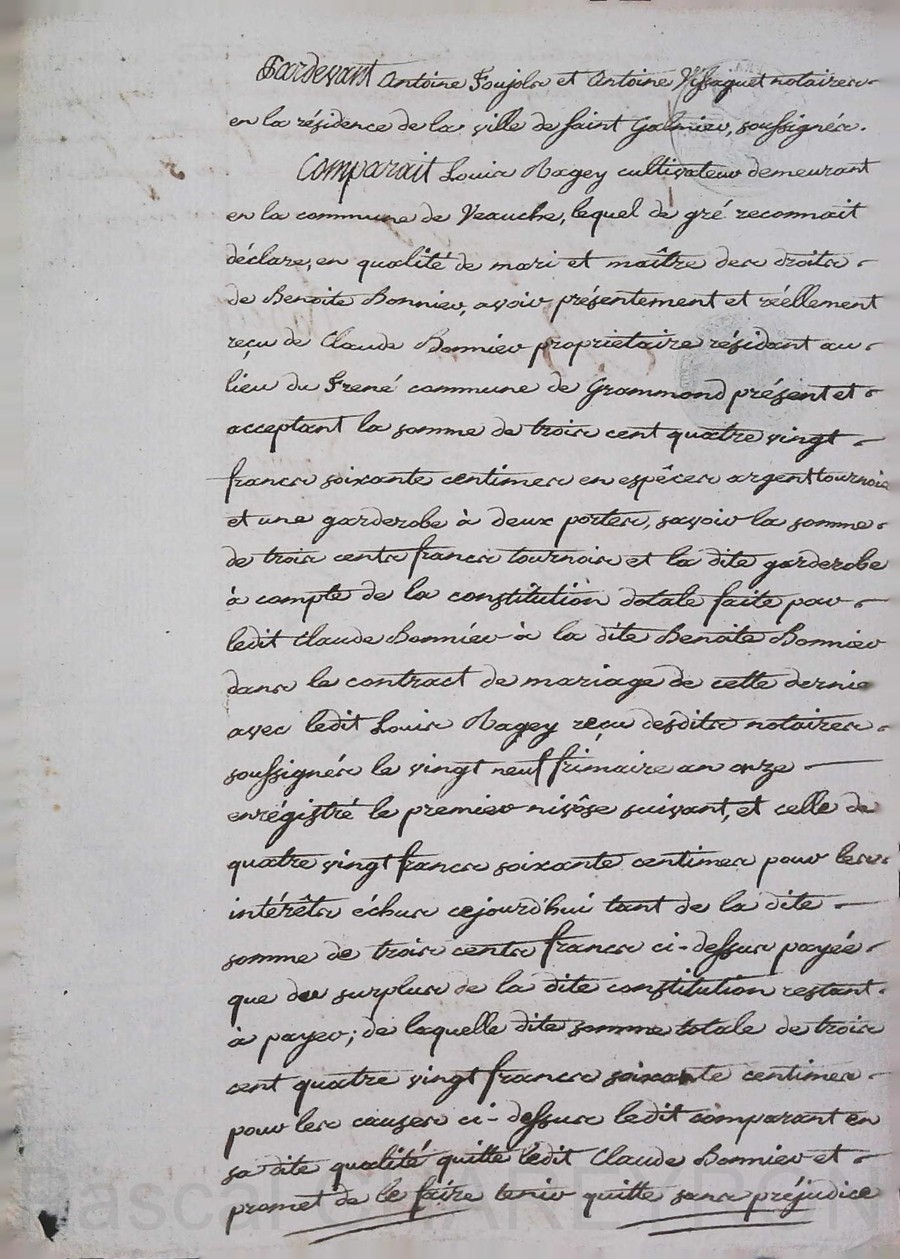 Pardevant Antoine Foujols et Antoine Vissaguet notaires
en la résidence de la ville de Saint Galmier, soussignés.
Comparait Louis Ragey cultivateur demeurant
en la commune de Veauche, lequel de gré reconnait
déclare, en qualité de mari et maître des droits
de Benoite Bonnier, avoir présentement et réellement
reçu de Claude Bonnier propriétaire résidant au
lieu du Frené commune de Grammond présent et
acceptant la somme de trois cent quatre vingt
francs soixante centimes en espèces argent tournois
et une garderobe à deux portes, savoir la somme
de trois cents francs tournois et la dite garderobe
à compte de la constitution dotale faite par
ledit Claude Bonnier à la dite Benoite Bonnier
dans le contract de mariage de cette dernie
avec ledit Louis Ragey reçu desdits notaires
soussignés le vingt neuf frimaire an onze
enrégistré le premier nivôse suivant, et celle de
quatre vingt francs soixante centimes pour les
intérêts échus cejourd'hui tant de la dite
somme de trois cents francs ci-dessus payée
que du surplus de la dite constitution restant
à payer; de laquelle dite somme totale de trois
cent quatre vingt francs soixante centimes
pour les causes ci-dessus ledit comparant en
sa dite qualité quitte ledit Claude Bonnier et
promet de le faire tenir quitte sans préjudice